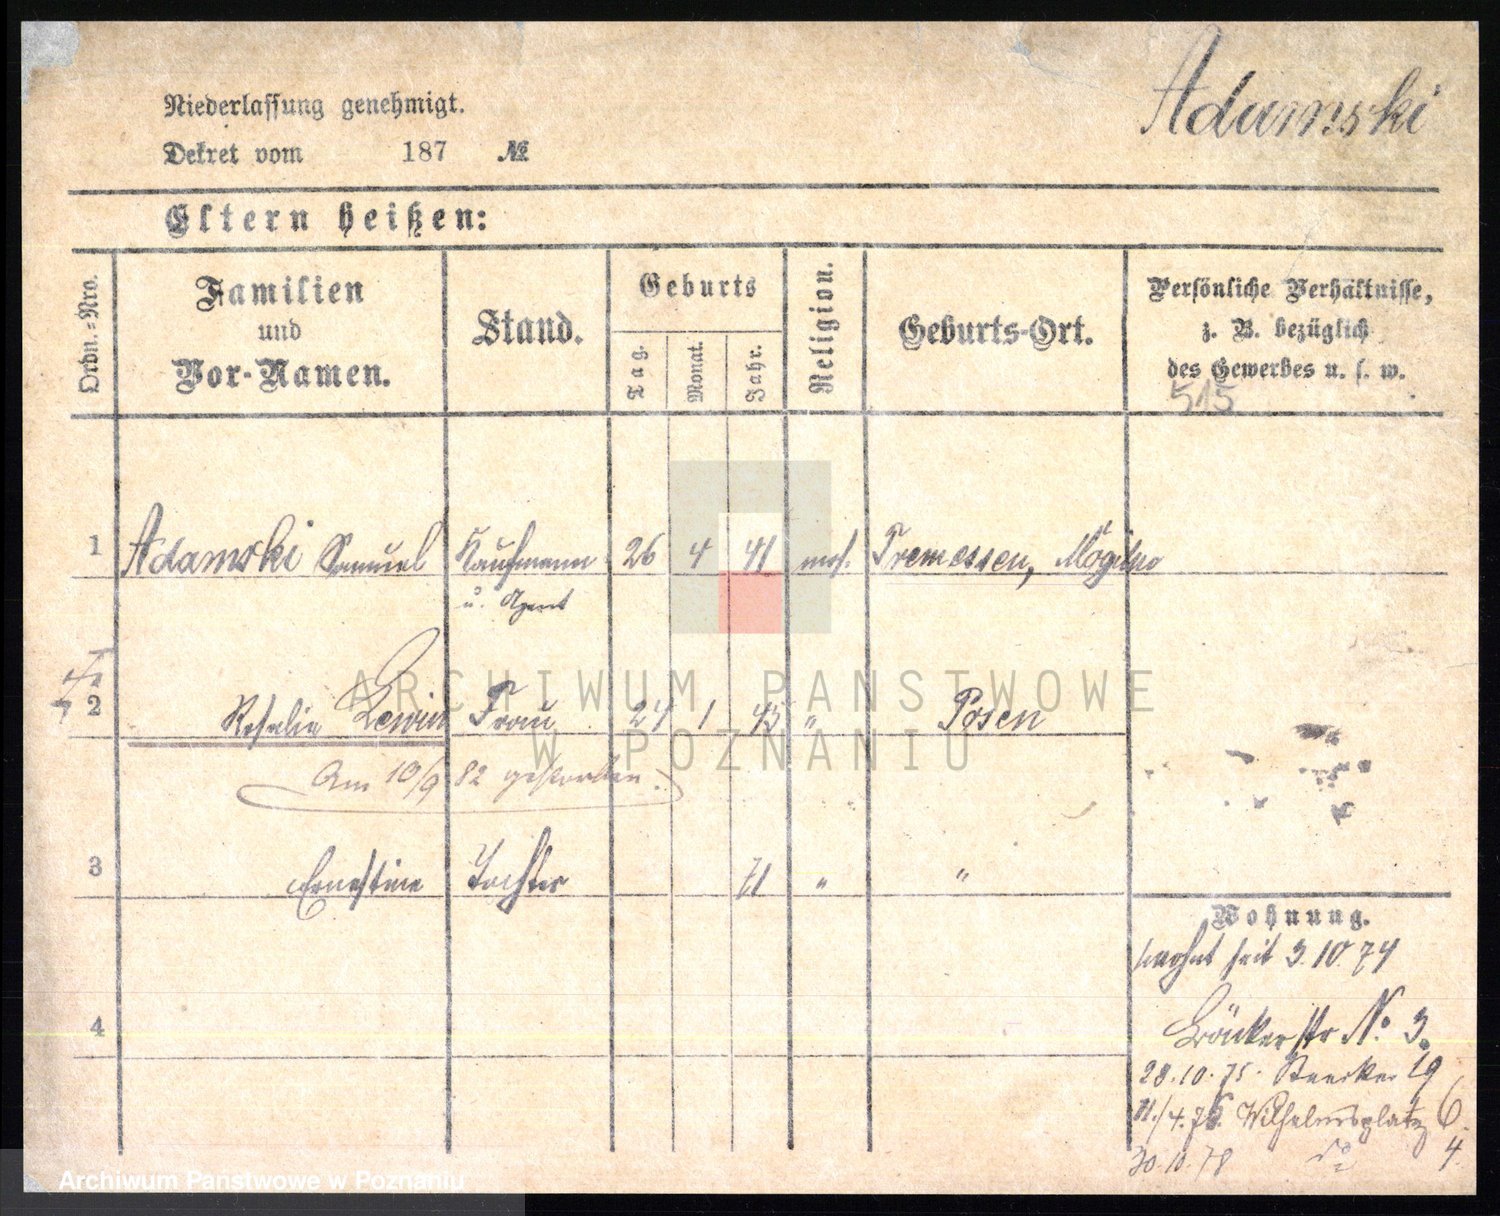 Adamski
Niederlassung genehmigt.
Dekret vom 187 №
Eltern heißen:
Ordn.=Nro.
Familien
und
Vor-Namen.
Stand.
Geburts
Tag.
Monat.
Jahr.
Religion.
Geburts-Ort.
Persönliche Verhältnisse,
z. B. bezüglich
des Gewerbes u. s. w.
515
1 Adamski Samuel Kaufmann 26 4 41 mos. Tremessen, Mogilno
u. Agent
2 Rosalie Lewin Frau 24 1 45 " Posen
Am 10/9 82 gestorben.
3 Ernestine Tochter 71 " "
4
Wohnung.
wohnt seit 3.10.74
Bäckerstr No 3.
28.10.75. 19
11./4.76. Wilhelmsplatz 6.
30.10.78 4.
ARCHIWUM PANSTWOWE
W POZNANIU
Archiwum Państwowe w Poznaniu